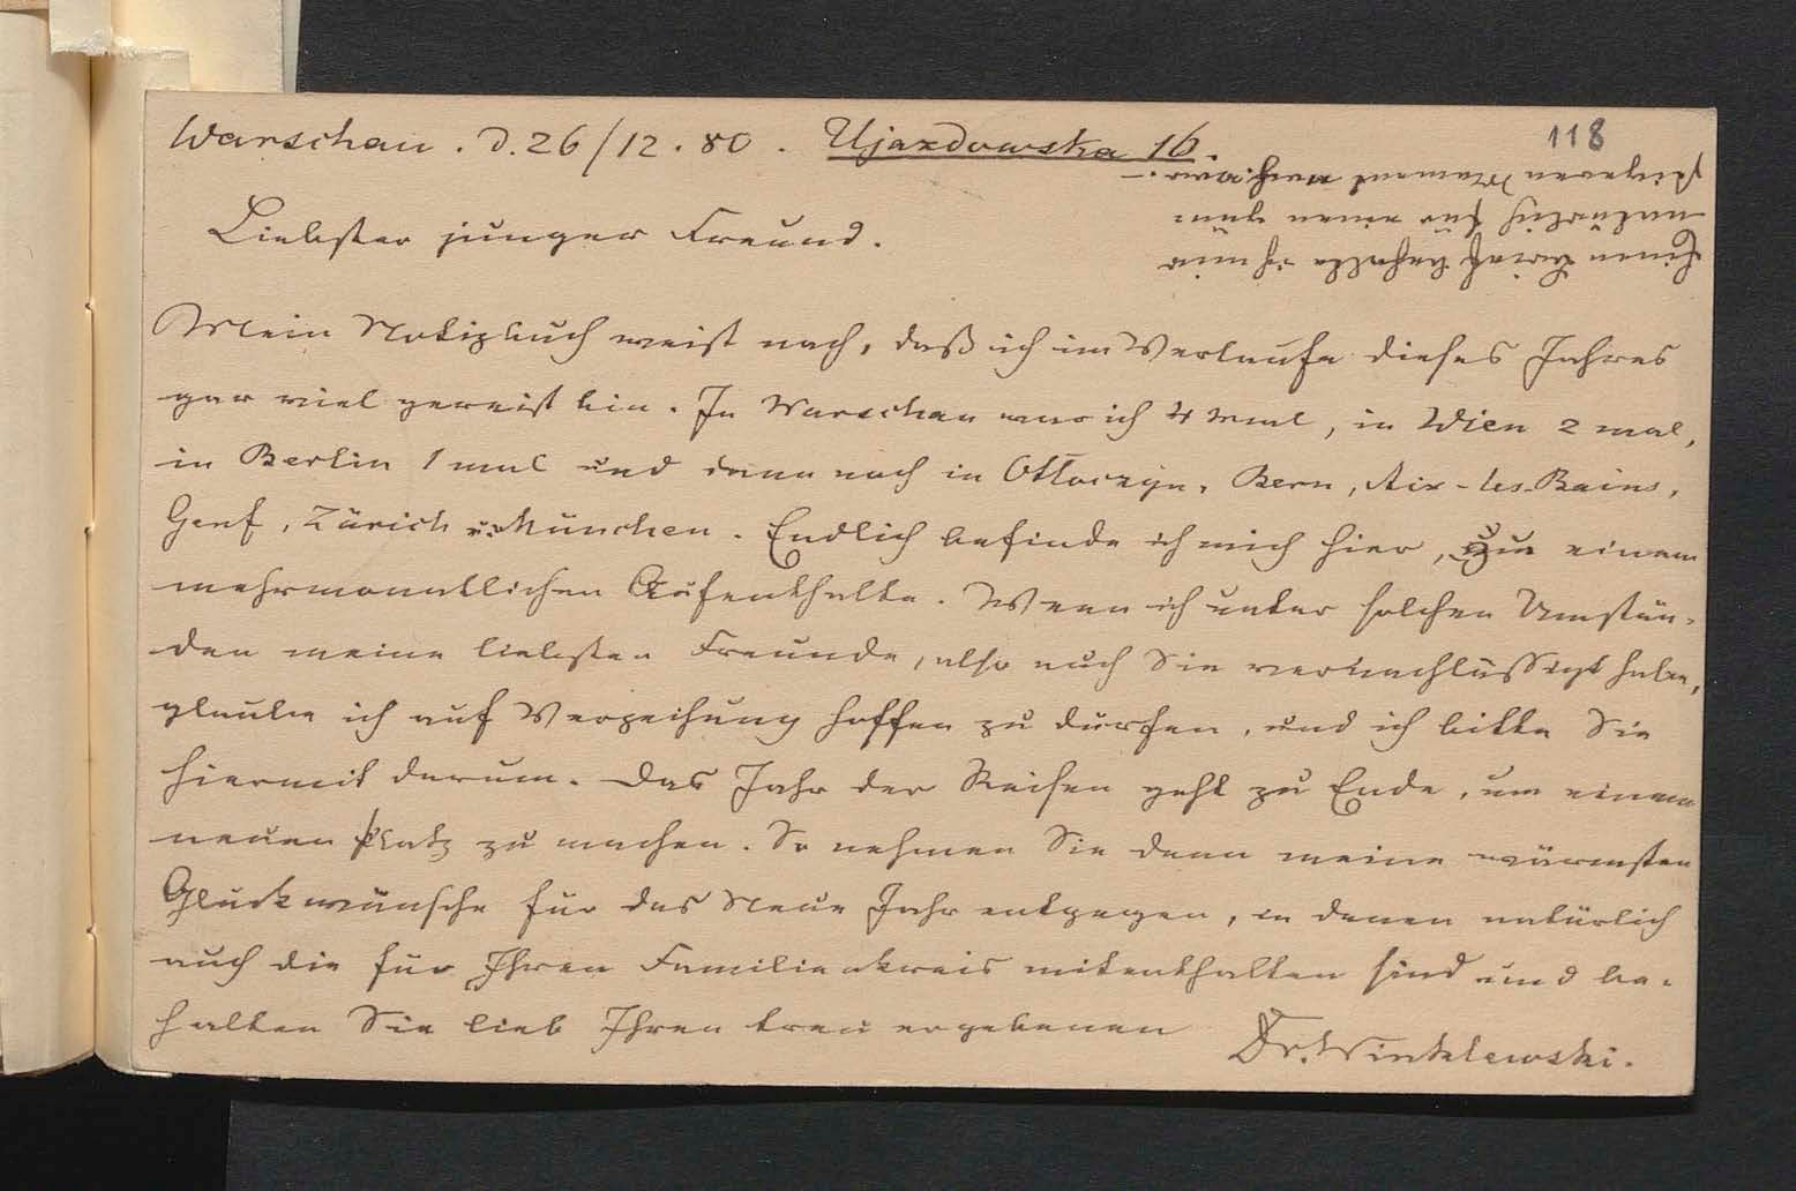 Warschau. d. 26/12. 80. Ujazdowska 16.
118
Liebster junger Freund.
Mein Notizbuch weist nach, daß ich im Verlaufe dieses Jahres
gar viel gereist bin. In Warschau war ich 4 mal, in Wien 2 mal,
in Berlin 1 mal und dann noch in Ottoczyn, Bern, Aix-les-Bains,
Genf, Zürich u. München. Endlich befinde ich mich hier, zu einem
mehrmonatlichen Aufenthalte. Wenn ich unter solchen Umstän-
den meine liebsten Freunde, also auch Sie vernachlässigt habe,
glaube ich auf Verzeihung hoffen zu dürfen, und ich bitte Sie
hiermit darum. Das Jahr der Reisen geht zu Ende, um einem
neuen Platz zu machen. So nehmen Sie denn meine wärmsten
Glückwünsche für das Neue Jahr entgegen, in denen natürlich
auch die für Ihren Familienkreis mitenthalten sind und be-
halten Sie lieb Ihren treu ergebenen Dr. Winklewski.
Einen Brief behalte ich mir
natürlich für einen gün-
stigeren Moment noch vor. –